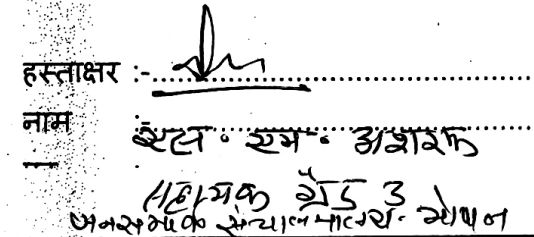 हस्ताक्षर :-
नाम :
एस. एम. अशरफ
सहायक ग्रेड 3
जनसम्पर्क संचालनालय. भोपाल